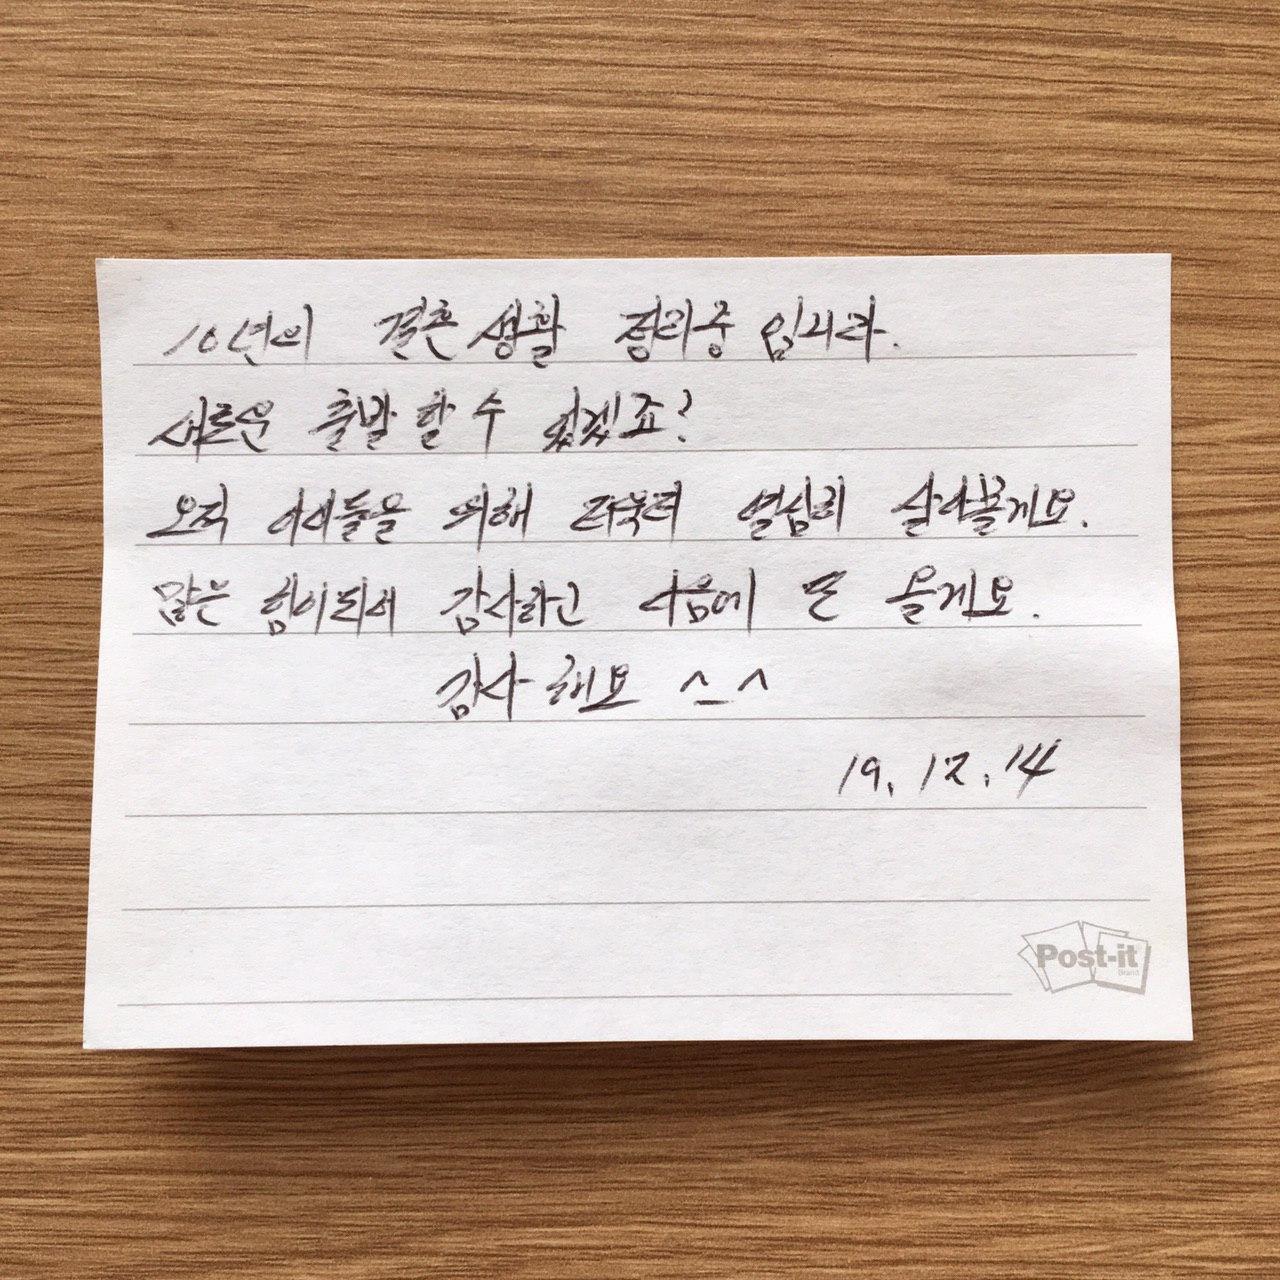 10년의 결혼생활 정리중입니다.
새로운 출발 할 수 있겠죠?
오직 아이들을 위해 더욱더 열심히 살아볼게요.
많은 힘이되어 감사하고 다음에 또 올게요.
감사해요 ^_^
19. 12. 14
Post-it
Brand